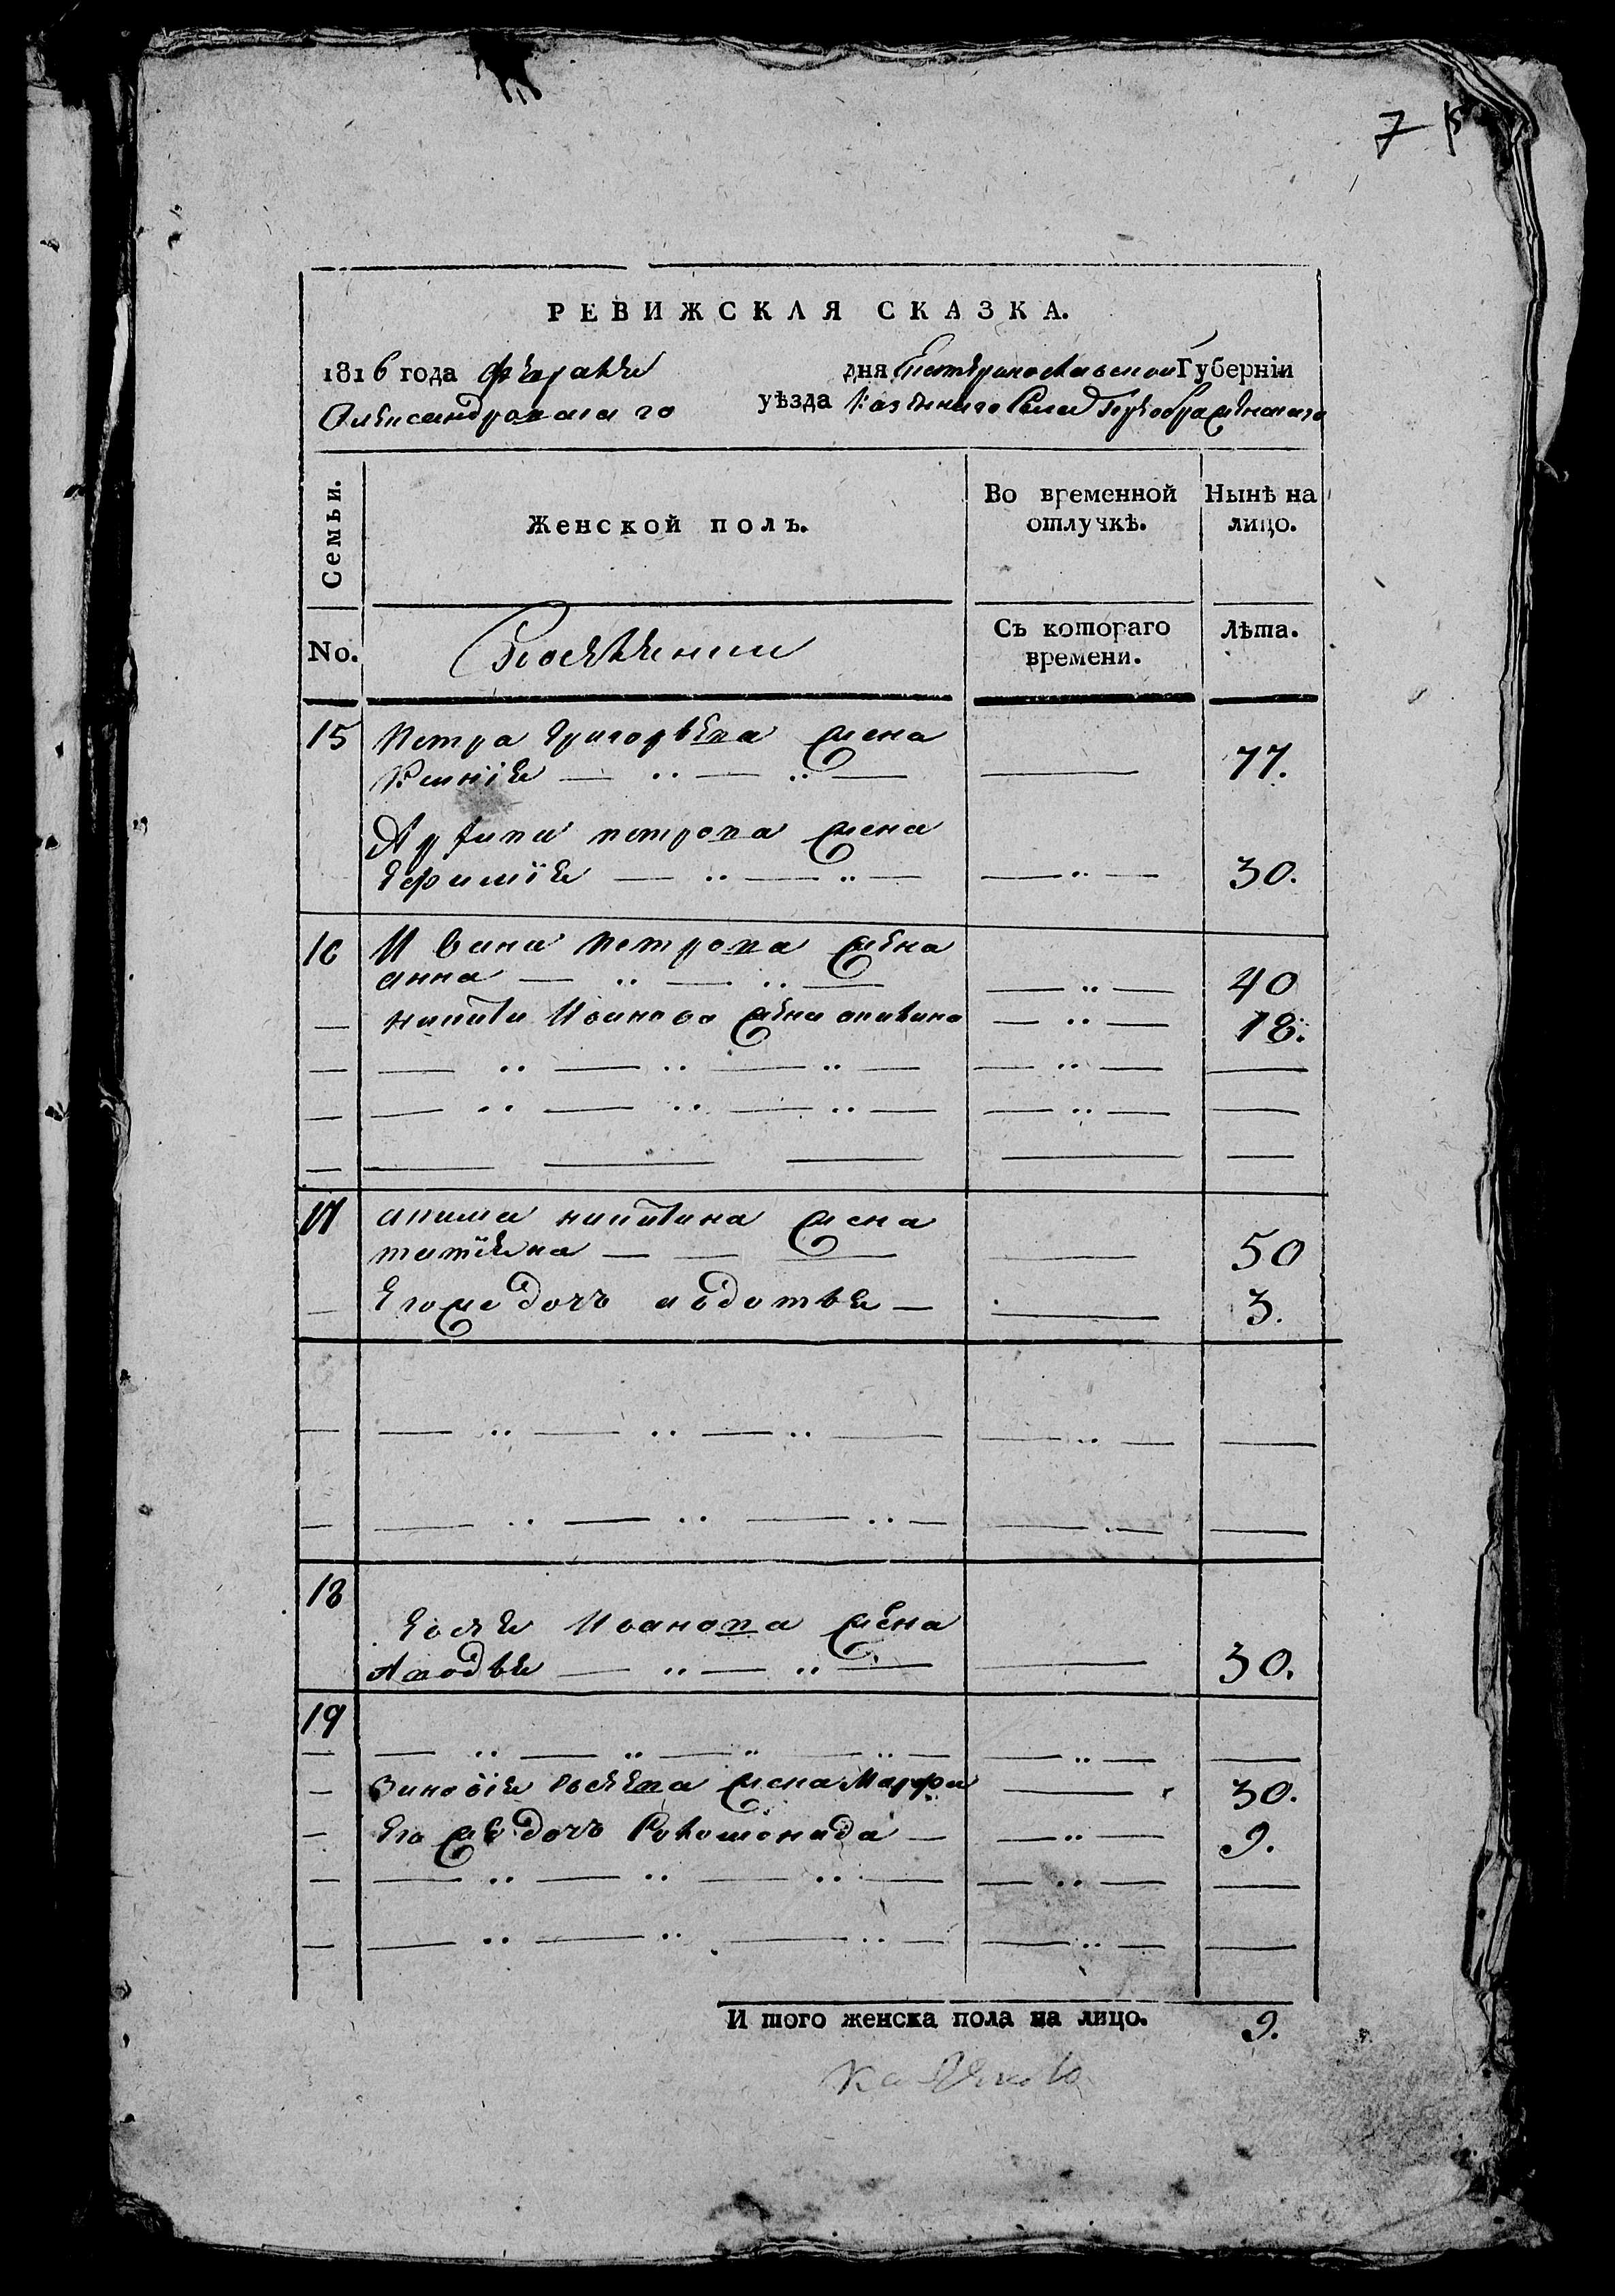 7
РЕВИЖСКАЯ СКАЗКА.
1816 года февраля дня Екатеринославской Губерніи
Александровскаго уѣзда Казеннаго Села Преображенскаго
Семьи.
Женской полъ.
Во временной отлучкѣ.
Нынѣ на лицо.
No.
Поселяніи
Съ котораго времени.
Лѣта.
15 Петра Григорьева жена
Ксиніе 77.
Архипа петрова жена
Ефиміе 30.
16 Ивана Петрова жена
анна 40
никиты Иванова жена 18.
17 никитина жена
татіена 50
Его же дочь авдотье 3.
18 Евсея Иванова жена
30.
19
Зиновіе Евсеева жена Марфа 30.
Его же дочь 9.
И того женска пола на лицо. 9.